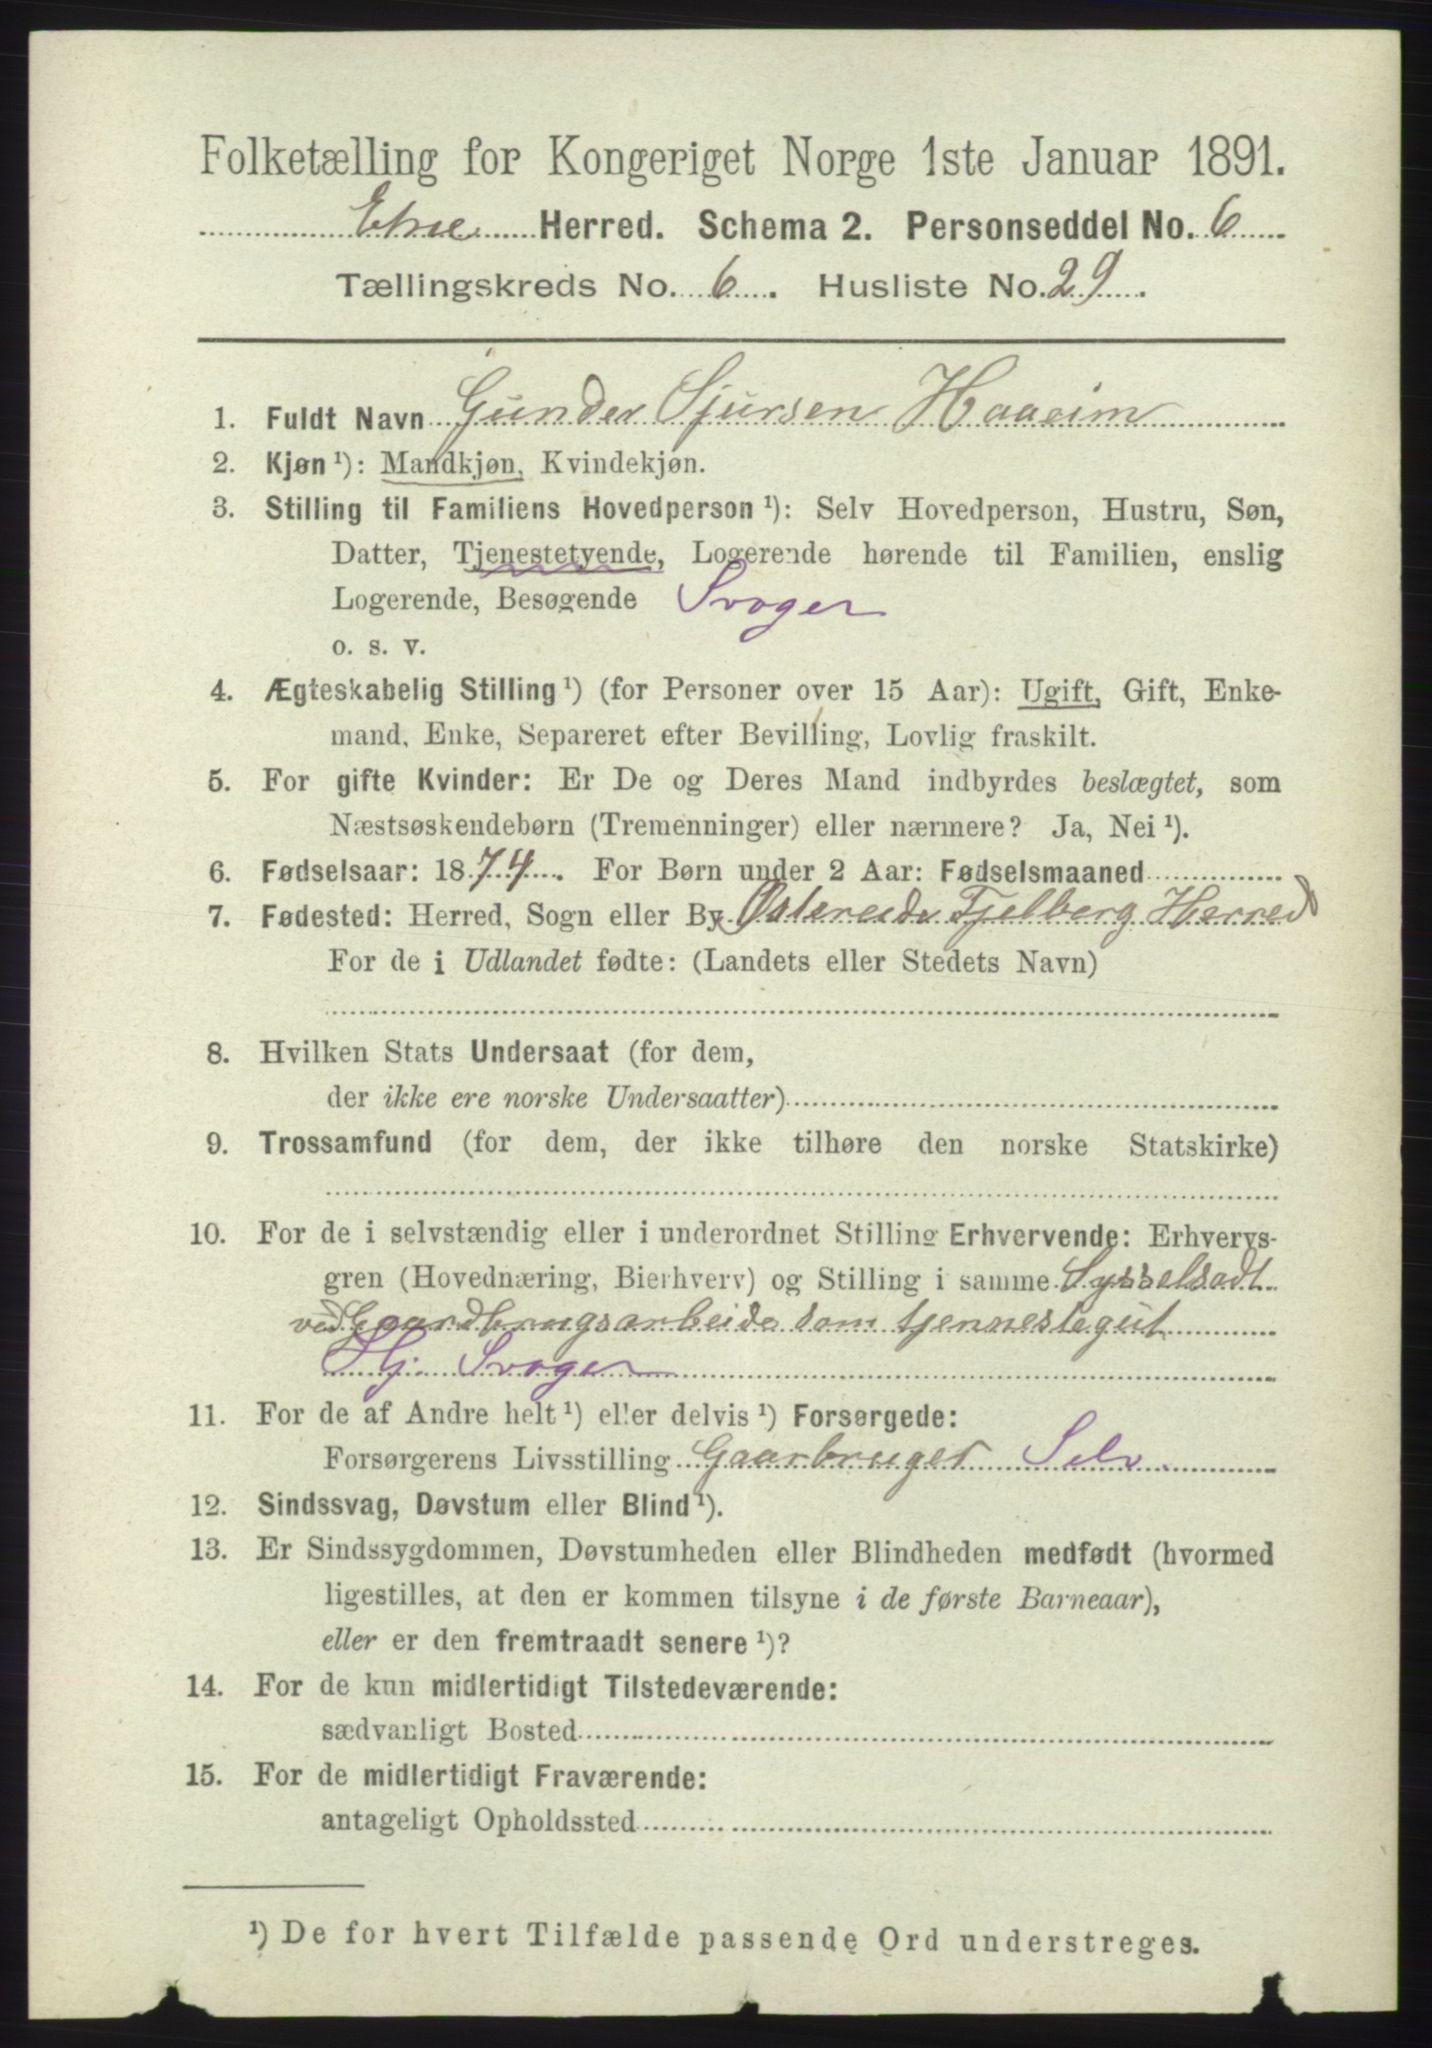 Folketælling for Kongeriget Norge 1ste Januar 1891.
Etne Herred. Schema 2. Personseddel No. 6
Tællingskreds No. 6. Husliste No. 29.
1. Fuldt Navn Gunder Sjursen Haaeim
2. Kjøn ¹): Mandkjøn, Kvindekjøn.
3. Stilling til Familiens Hovedperson ¹): Selv Hovedperson, Hustru, Søn,
Datter, Tjenestetyende, Logerende hørende til Familien, enslig
Logerende, Besøgende Svoger
o. s. v.
4. Ægteskabelig Stilling ¹) (for Personer over 15 Aar): Ugift, Gift, Enke-
mand, Enke, Separeret efter Bevilling, Lovlig fraskilt.
5. For gifte Kvinder: Er De og Deres Mand indbyrdes beslægtet, som
Næstsøskendebørn (Tremenninger) eller nærmere? Ja, Nei ¹).
6. Fødselsaar: 1874. For Børn under 2 Aar: Fødselsmaaned
7. Fødested: Herred, Sogn eller By Østereide Fjelberg Herred
For de i Udlandet fødte: (Landets eller Stedets Navn)
8. Hvilken Stats Undersaat (for dem,
der ikke ere norske Undersaatter)
9. Trossamfund (for dem, der ikke tilhøre den norske Statskirke)
10. For de i selvstændig eller i underordnet Stilling Erhvervende: Erhvervs-
gren (Hovednæring, Bierhverv) og Stilling i samme Sysselsadt
ved Gaardbrugsarbeide som tjennestegut
Hj. Svoger
11. For de af Andre helt ¹) eller delvis ¹) Forsørgede:
Forsørgerens Livsstilling Gaarbruger Selv.
12. Sindssvag, Døvstum eller Blind ¹).
13. Er Sindssygdommen, Døvstumheden eller Blindheden medfødt (hvormed
ligestilles, at den er kommen tilsyne i de første Barneaar),
eller er den fremtraadt senere ¹)?
14. For de kun midlertidigt Tilstedeværende:
sædvanligt Bosted
15. For de midlertidigt Fraværende:
antageligt Opholdssted
¹) De for hvert Tilfælde passende Ord understreges.